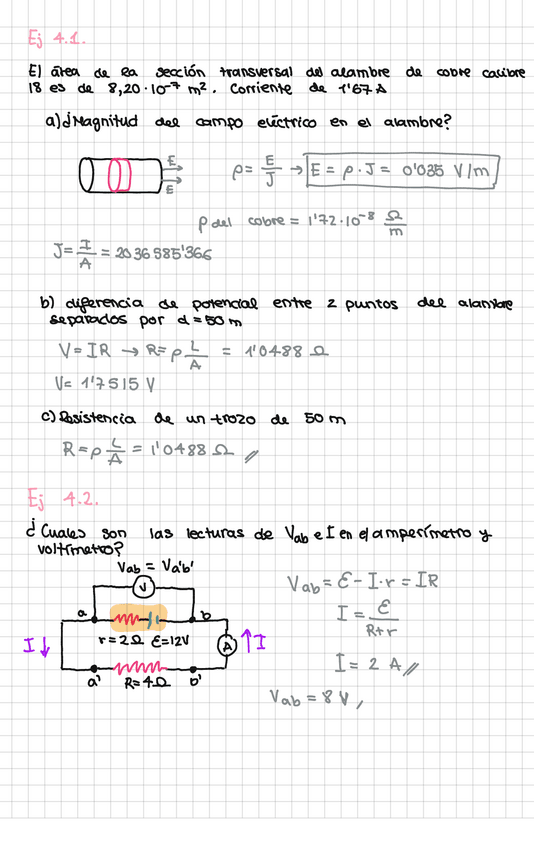 Ej 4.1.
El área de la sección transversal del alambre de cobre calibre
18 es de 8,20·10⁻⁷ m². Corriente de 1'67 A
a) ¿Magnitud del campo eléctrico en el alambre?
E
E
ρ = E/J → E = ρ · J = 0'035 V/m
ρ del cobre = 1'72·10⁻⁸ Ω/m
J = I/A = 2036585'366
b) diferencia de potencial entre 2 puntos del alambre
separados por d = 50 m
V = IR → R = ρ L/A = 1'0488 Ω
V = 1'7515 V
c) Resistencia de un trozo de 50 m
R = ρ L/A = 1'0488 Ω //
Ej 4.2.
¿Cuales son las lecturas de Vab e I en el amperímetro y
voltímetro?
Vab = Va'b'
V
a
b
r = 2Ω ε = 12V
I ↓
A
↑ I
a'
R = 4Ω
b'
Vab = ε - I·r = IR
I = ε/R+r
I = 2 A //
Vab = 8 V,